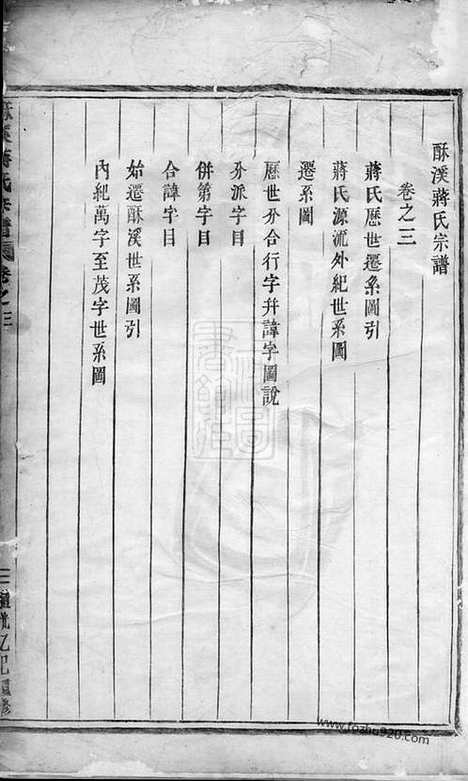 酥溪蔣氏宗譜
卷之三
蔣氏歷世遷系圖引
蔣氏源流外紀世系圖
遷系圖
歷世分合行字并諱字圖說
分派字目
併第字目
合諱字目
始遷酥溪世系圖引
內紀萬字至茂字世系圖
酥溪蔣氏宗譜 卷之三
www.fozhu920.com